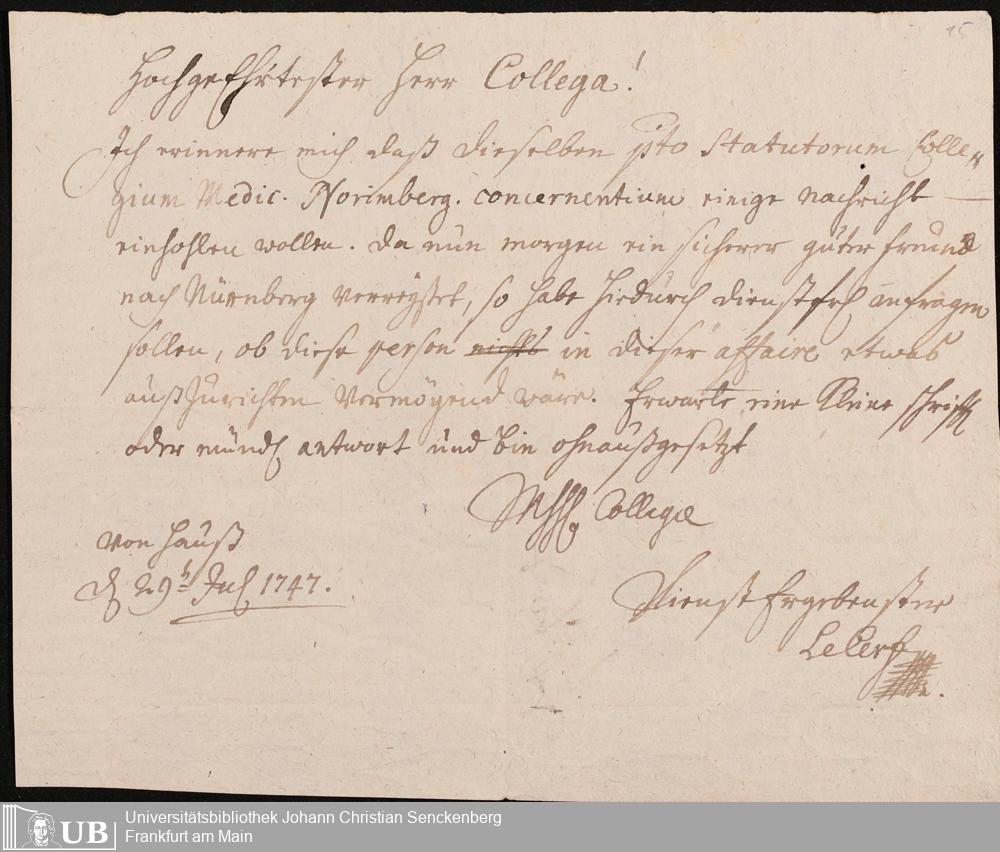 15
HochgeEhrtester Herr Collega!
Ich erinnere mich daß dieselben pto Statutorum Colle-
gium Medic. Norimberg. concernentium einige Nachricht
einhohlen wollen. Da nun morgen ein sicherer guter freund
nach Nürnberg verreyset, so habe hiedurch dienstfrl anfragen
sollen, ob diese person nichts in dieser affaire etwas
außzurichten vermögend wäre. Erwarte eine kleine schrifftl
oder mündl antwort und bin ohnaußgesetzt
Collegæ
von Hauß
d 29t Jul 1747.
DienstErgebenster
LeCerf
UB Universitätsbibliothek Johann Christian Senckenberg
Frankfurt am Main